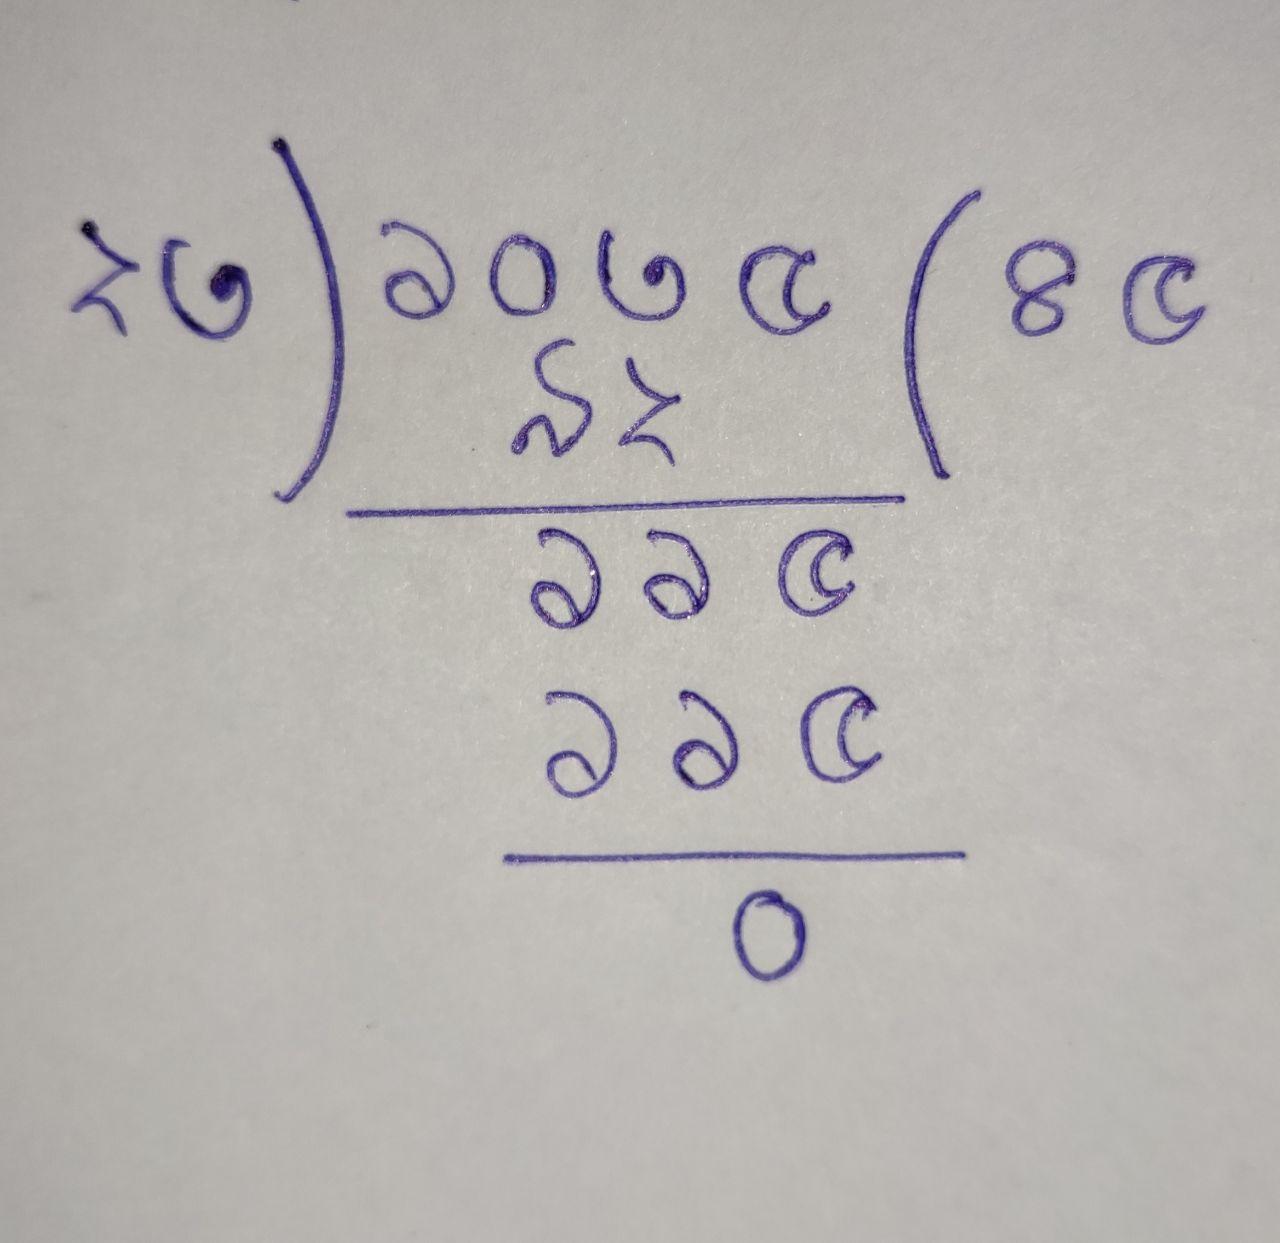 ২৩)১০৩৫(৪৫
৯২
১১৫
১১৫
০